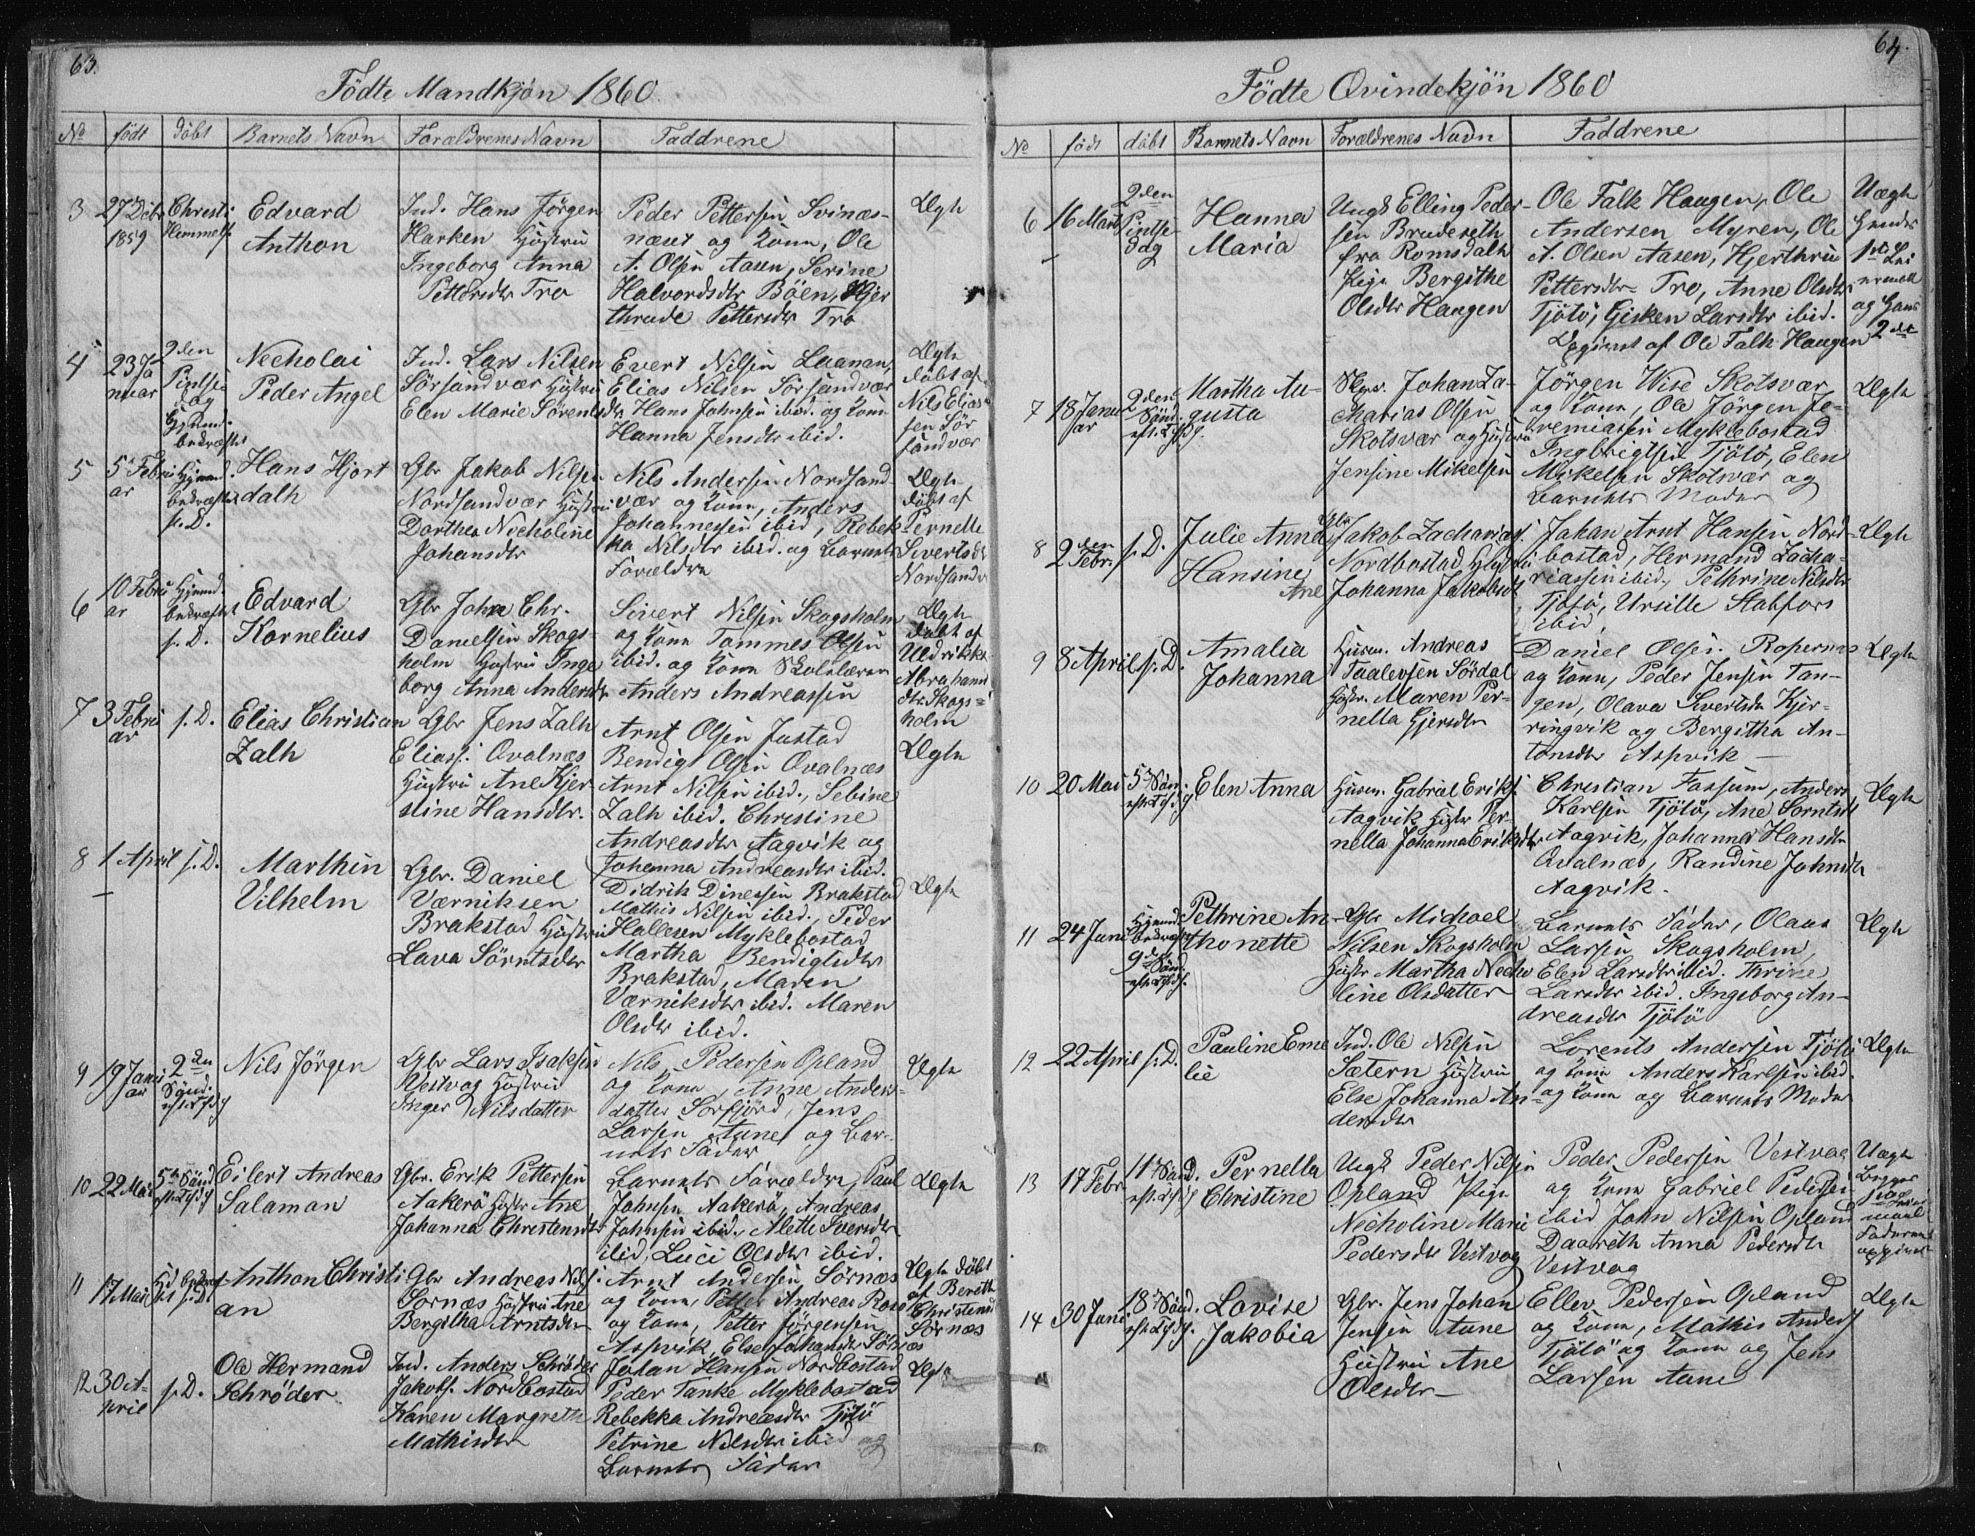 63.
Fødte Mandkjøn 1860.
No født døbt Barnets Navn Forældrenes Navn Faddrene
3 27 Decbr 1859 Christi Himmelf. Edvard Anthon
Ind. Hans Jørgen
Harken Hustru
Ingeborg Anna
Pettersdtr Tro
Peder Pettersen Svinæs-
næset og Kone, Ole
A. Olsen Aasen, Serine
Halvordsdtr Böen, Hjer
thrude Pettersdtr Tro
Ægte
4 23 Ja
nuar
2den
Pintse
dag
Hjemd.
bekræftet
Necholai
Peder Angel
Ind. Lars Nilsen
Sörsandvær Hustru
Elen Marie Sörensdtr
Evert Nilsen Laanan,
Elias Nilsen Sörsandvær
Hans Johnsen ibid. og Kone
Hanna Jensdtr ibid.
Ægte
døbt af
Nils Elias
sen Sör
sandvær
5 5 Febru
ar
Hjemd.
bekræftet
s. D.
Hans Hjort
dalh
Gbr Jakob Nilsen
Nordsandvær Hustru
Dorthea Necholine
Johansdtr
Nils Andersen Nordsand
vær og Kone, Anders
Johannesen ibid, Rebek
ka Nilsdtr ibid. og Barnets
Forældre
Ægte
døbt af
Pernelle
Sivertsdtr
Nordsandv
6 10 Febru
ar
Hjemd.
bekræftet
s. D.
Edvard
Kornelius
Gbr John Chr.
Danielsen Skogs-
holm Hustru Inge
borg Anna Andersdtr
Sivert Nilsen Skogsholm
og Kone Tommes Olsen
ibid. og Kone Skolelærer
Anders Andreassen
Ægte
døbt af
Uldrikke
Abrahams
dtr Skogs-
holm
7 3 Febru
ar
s. D.
Elias Christian
Zalh
Gbr Jens Zalh
Eliass. Qvalnæs
Hustru Ane Kjer
stine Hansdtr.
Arnt Olsen Justad
Bendigt Olsen Qvalnæs
Arnt Nilsen ibid., Sebine
Zalh ibid. Christine
Andreasdtr Aagvik og
Johanna Andreasdtr ibid.
Ægte
8 1 April s. D.
Marthin
Vilhelm
Gbr. Daniel
Værniksen
Brakstad Hustru
Lava Sörensdtr
Didrik Dinessen Brakstad
Mathis Nilsen ibid., Peder
Hallesen Myklebostad
Martha Bendigtsdtr
Brakstad, Maren
Værniksdtr ibid. Maren
Olsdtr ibid.
Ægte
9 19 Janu
ar
2den
Sönd.
eft. Tfdg
Nils Jörgen
Gbr Lars Isaksen
Vestvog Hustru
Inger Nilsdatter
Nils Pedersen Opland
og Kone, Anne Anders-
datter Sorfjord, Jens
Larsen Aune og Bar-
nets Fader
Ægte
10 22 Mai
5te Sönd
eft. Tfdg
Eilert Andreas
Salamon
Gbr. Erik Pettersen
Aakerö Hustr Ane
Johanna Christensdtr
Barnets Forældre, Paul
Johnsen Aakerö, Andreas
Johnsen ibid. Mette Iversdtr
ibid, Luci Olsdtr ibid.
Ægte
11 17 Mai
Hd bekræf
tet s. D.
Anthon Christi
an
Gbr Andreas Nilss.
Sornæs Hustru Ane
Bergitha Arntsdtr
Arnt Andersen Sörnæs
og Kone, Petter Andreas Rosö
og Kone, Petter Jörgensen
Aspvik, Else Johansdtr Sörnæs
Ægte døbt
af Bereth
Christensd
Sörnæs
12 30 A-
pril
s. D.
Ole Hermand
Schrøder
Ind. Anders Schrøder
Jakobs. Nordbostad
Karen Margreth
Mathisdtr
Johan Hansen Nordbostad
Peder Tanke Myklebostad
Rebekka Andreasdtr Tjötö
Petrine Nilsdtr ibid og
Barnets Fader
Ægte
64.
Fødte Qvindekjön 1860
No født døbt Barnets Navn Forældrenes Navn Faddrene
6 16 Marts
2den
Pintse
dag
Hanna
Maria
Ungk Elling Peder-
sen Brudeseth
fra Romsdalh
Pige Bergithe
Olsdtr Haugen
Ole Falk Haugen, Ole
Andersen Myren, Ole
A. Olsen Aasen, Hjerthru
Pettersdtr Tro, Anne Olsdtr
Tjötö, Gisken Larsdtr ibid.
Opgivet af Ole Falk Haugen
Uægte
Hendes
1ste Lei
ermaal
og Hans
2det
7 18 Janu
ar
2den
Sönd.
eft. Tfdg.
Martha Au-
gusta
Johan Za-
charias Olsen
Skotsvær og Hustru
Jensine Mikelsen
Jörgen Wise Skotsvær
og Kone, Ole Jörgen Je-
remiasen Myklebostad
Ingbrigtsen Tjötö, Elen
Mikelsen Skotsvær og
Barnets Moder
Ægte
8 2den
Febr.
s. D.
Julie Anna
Hansine
Ane
Gbr Jakob Zachariass
Nordbostad Hustru
Johanna Jakobsdt
Johan Arnt Hansen Nord-
bostad, Hermand Zacha-
riassen ibid, Pethrine Nilsdtr
Tjötö, Ursille Stabfors
ibid,
Ægte
9 8 April s. D.
Amalia
Johanna
Husm. Andreas
Taalevsen Sördal
Hustr. Maren Per-
nella Gjersdtr
Daniel Olsen Ropernes
og Kone, Peder Jensen Tan-
gen, Olava Sivertsdtr Kjer-
ringvik og Bergitha An-
tonsdtr Aspvik
Ægte
10 20 Mai
5te Sönd.
eft. Tfdg
Elen Anna
Husm. Gabriel Eriks.
Aagvik Hustr Per-
nella Johanna Eriksdtr
Christian Fossum, Anders
Karlsen Tjötö, Ane Sorntsdt
Aagvik, Johanna Hansdtr
Qvalnæs, Randine Johnsdtr
Aagvik.
Ægte
11 24 Juni
Hjemd
bekræft
9de Sönd.
eft. Tfdg.
Pethrine An-
thonette
Gbr Michael
Nilsen Skogsholm
Hustr Martha Necho
line Olsdatter
Barnets Fader, Olaus
Larsen Skogsholm,
Elen Larsdtr ibid. Thrine
Larsdtr ibid. Ingeborg An-
dreasdtr Tjötö
Ægte
12 22 April s. D.
Pauline Eme
lie
Ind. Ole Nilsen
Sætern Hustru
Else Johanna An-
dersdtr
Lorents Andersen Tjötö
og Kone Anders Karlsen ibid.
og Kone og Barnets Moder
Ægte
13 17 Febr.
11te Sönd.
eft. Tfdg
Pernella
Christine
Ungk Peder Nilsen
Opland Pige
Necholine Marie
Pedersdtr Vestvog
Peder Pedersen Vestvog
og Kone Gabriel Pedersen
ibid John Nilsen Opland
Daareth Anna Pedersdtr
Vestvog
Uægte
Begges
1ste Leier
maal
Faderen
opgivet
14 30 Juni
18de Sönd.
eft. Tfdg.
Lovise
Jakobia
Gbr. Jens Johan
Jensen Aune
Hustru Ane
Olsdtr
Eller Pedersen Opland
og Kone, Mathis Anders
Tjötö og Kone og Jens
Larsen Aune
Ægte